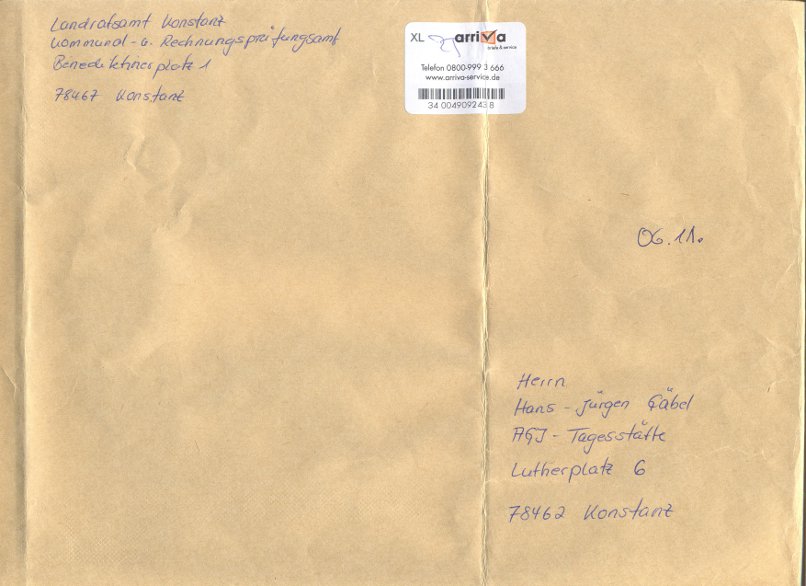 Landratsamt Konstanz
Kommunal- u. Rechnungsprüfungsamt
Benediktinerplatz 1
78467 Konstanz
XL arriva
briefe & service
Telefon 0800-999 3 666
www.arriva-service.de
34 0049092438
06.11.
Herrn
Hans-Jürgen Gäbel
AGJ-Tagesstätte
Lutherplatz 6
78462 Konstanz